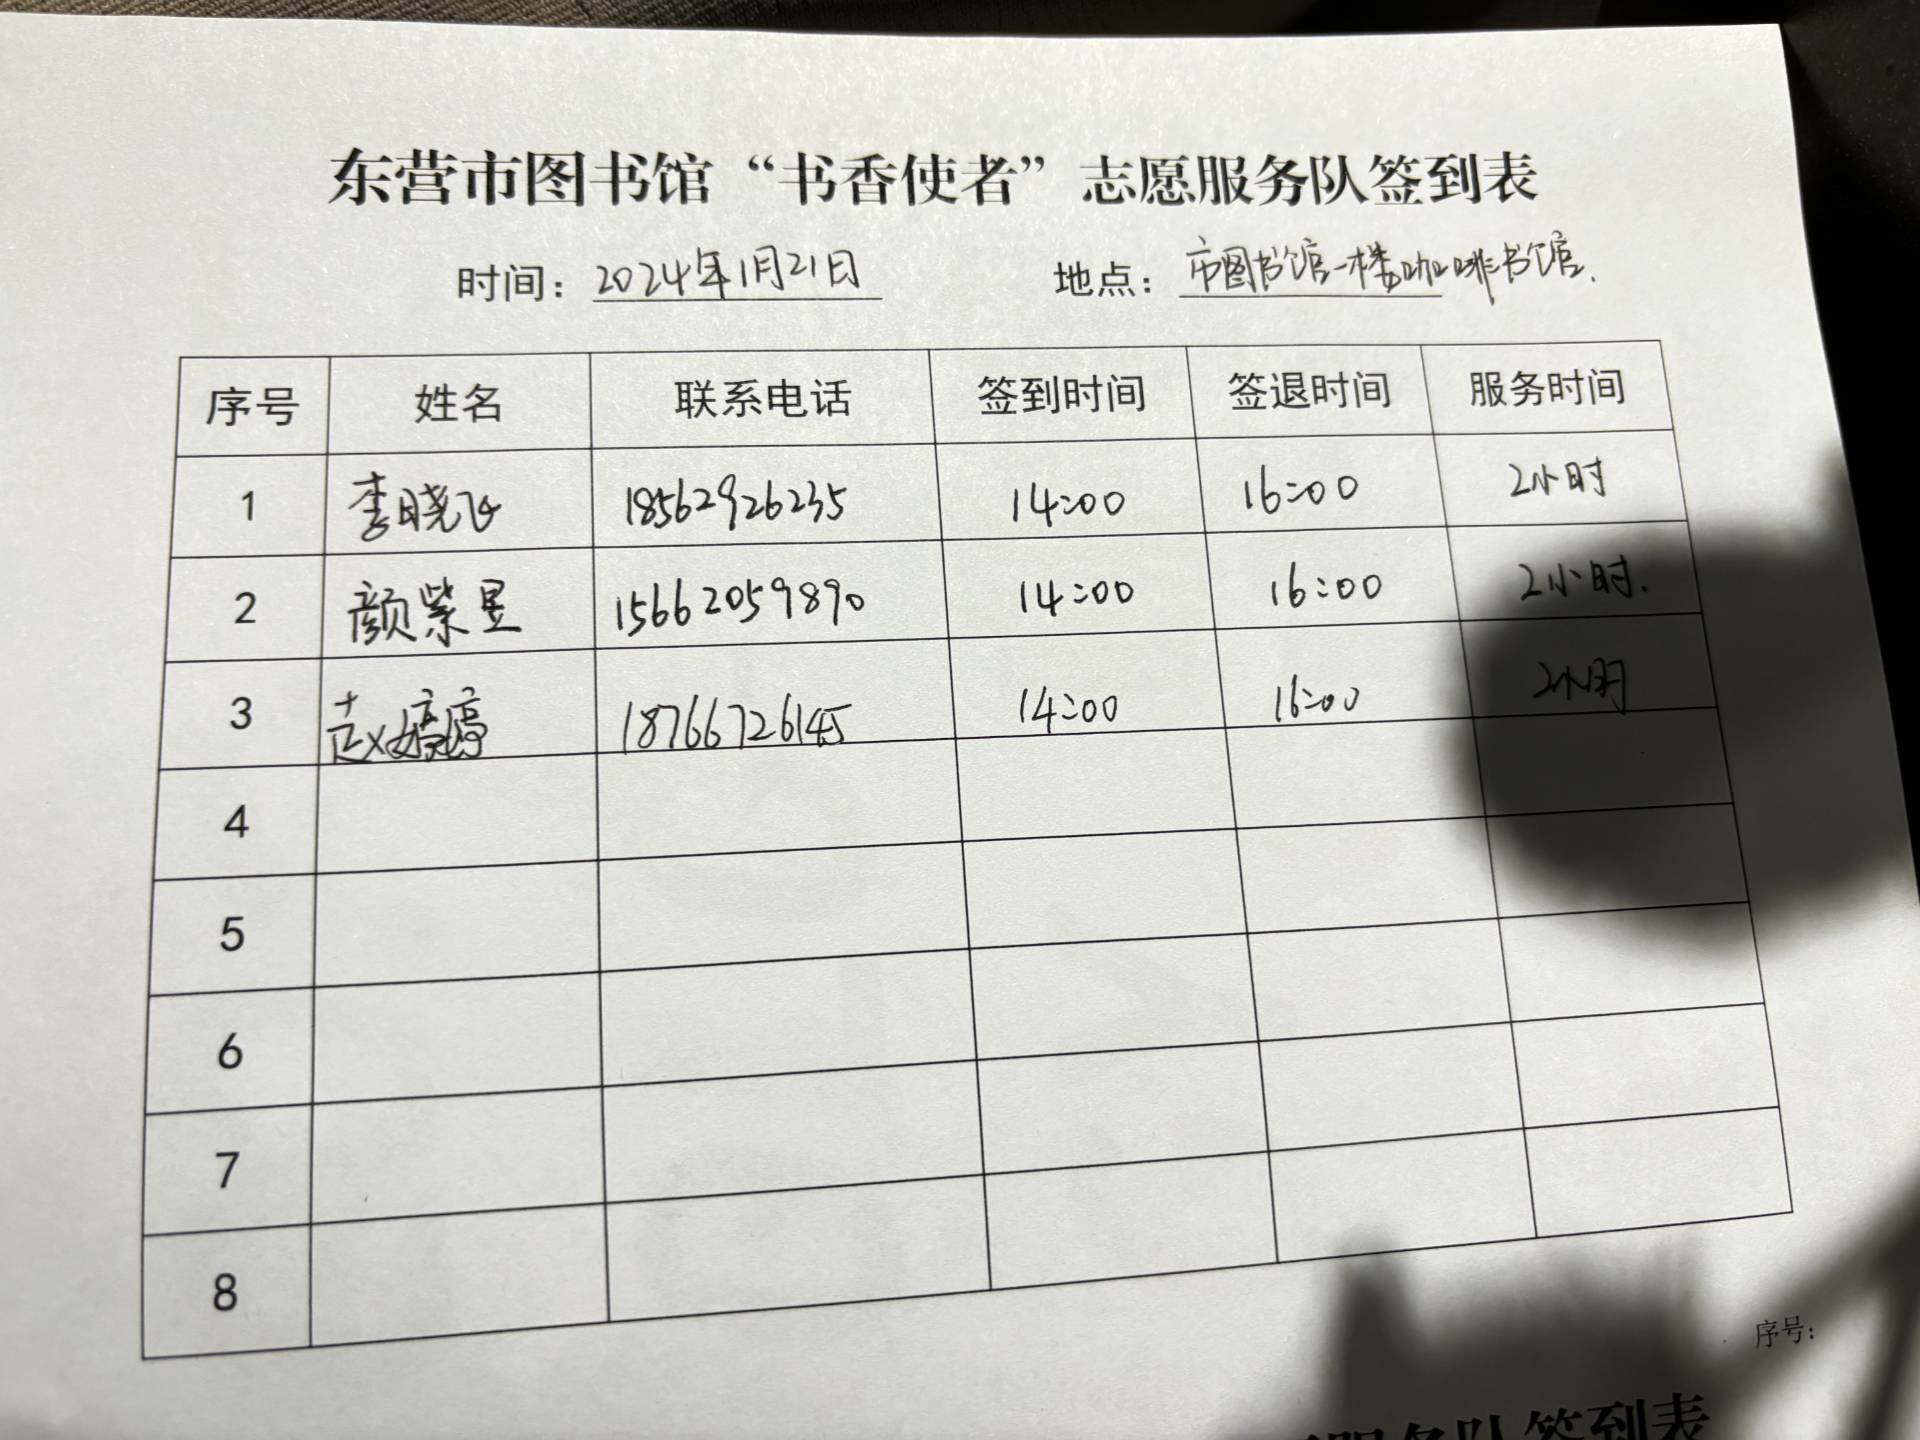 东营市图书馆“书香使者”志愿服务队签到表
时间：2024年1月21日 地点：市图书馆一楼咖啡书馆.
序号 姓名 联系电话 签到时间 签退时间 服务时间
1 李晓飞 18562926235 14:00 16:00 2小时
2 颜紫昱 15662059890 14:00 16:00 2小时.
3 赵婷婷 18766726145 14:00 16:00 2小时
4
5
6
7
8
序号：
服务队签到表